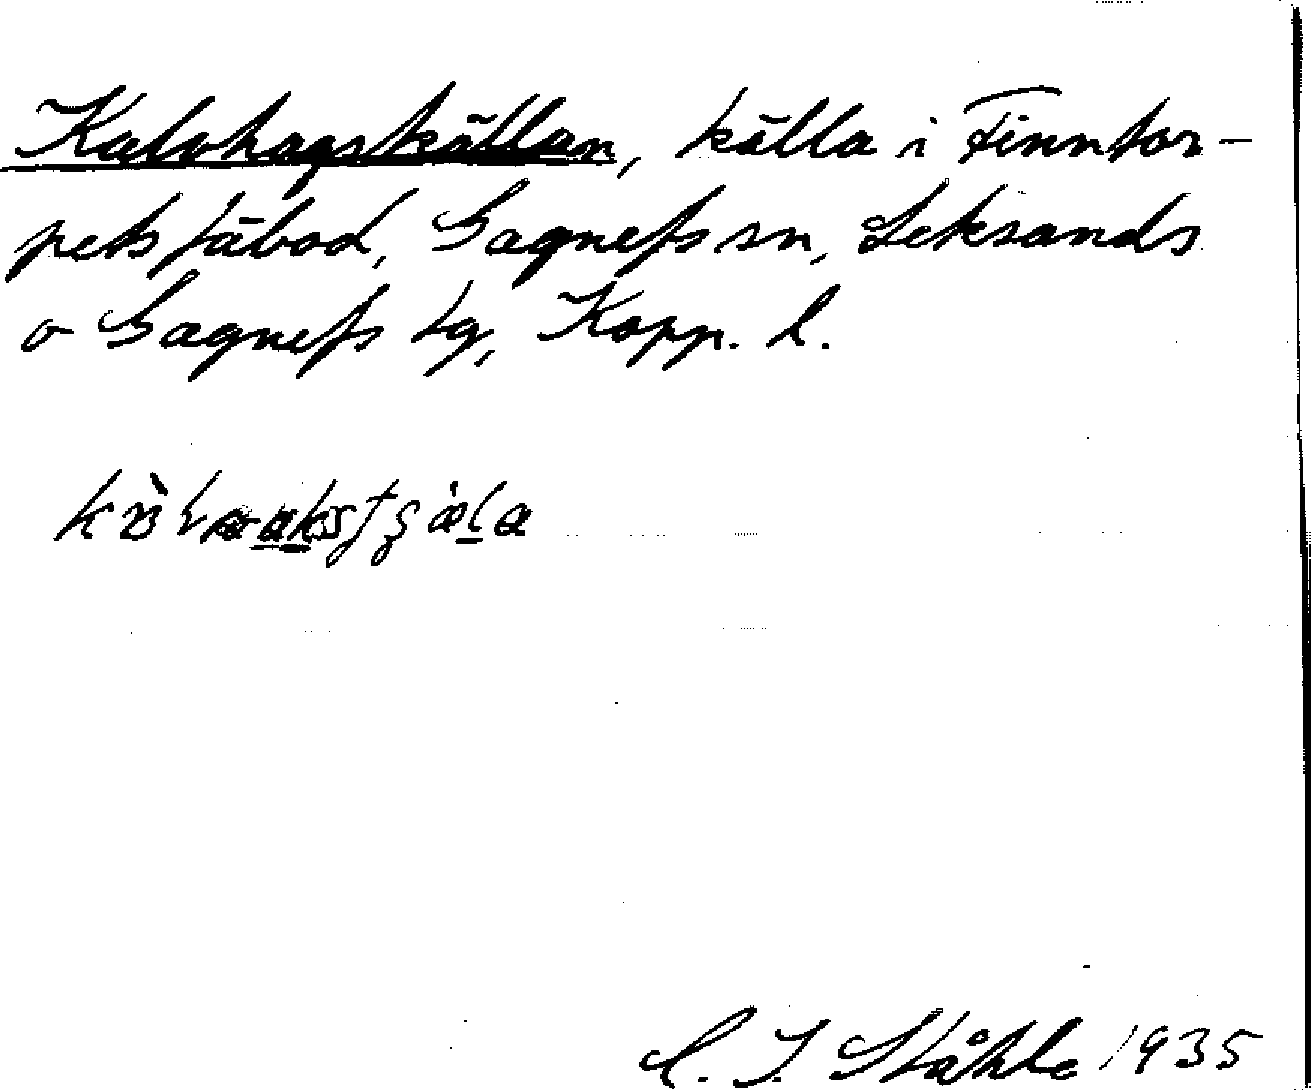 Kalvhagskällan, källa i Finntor-
pets fäbod, Gagnefs sn, Leksands
o Gagnefs tg, Kopp. l.
C. I. Ståhle 1935